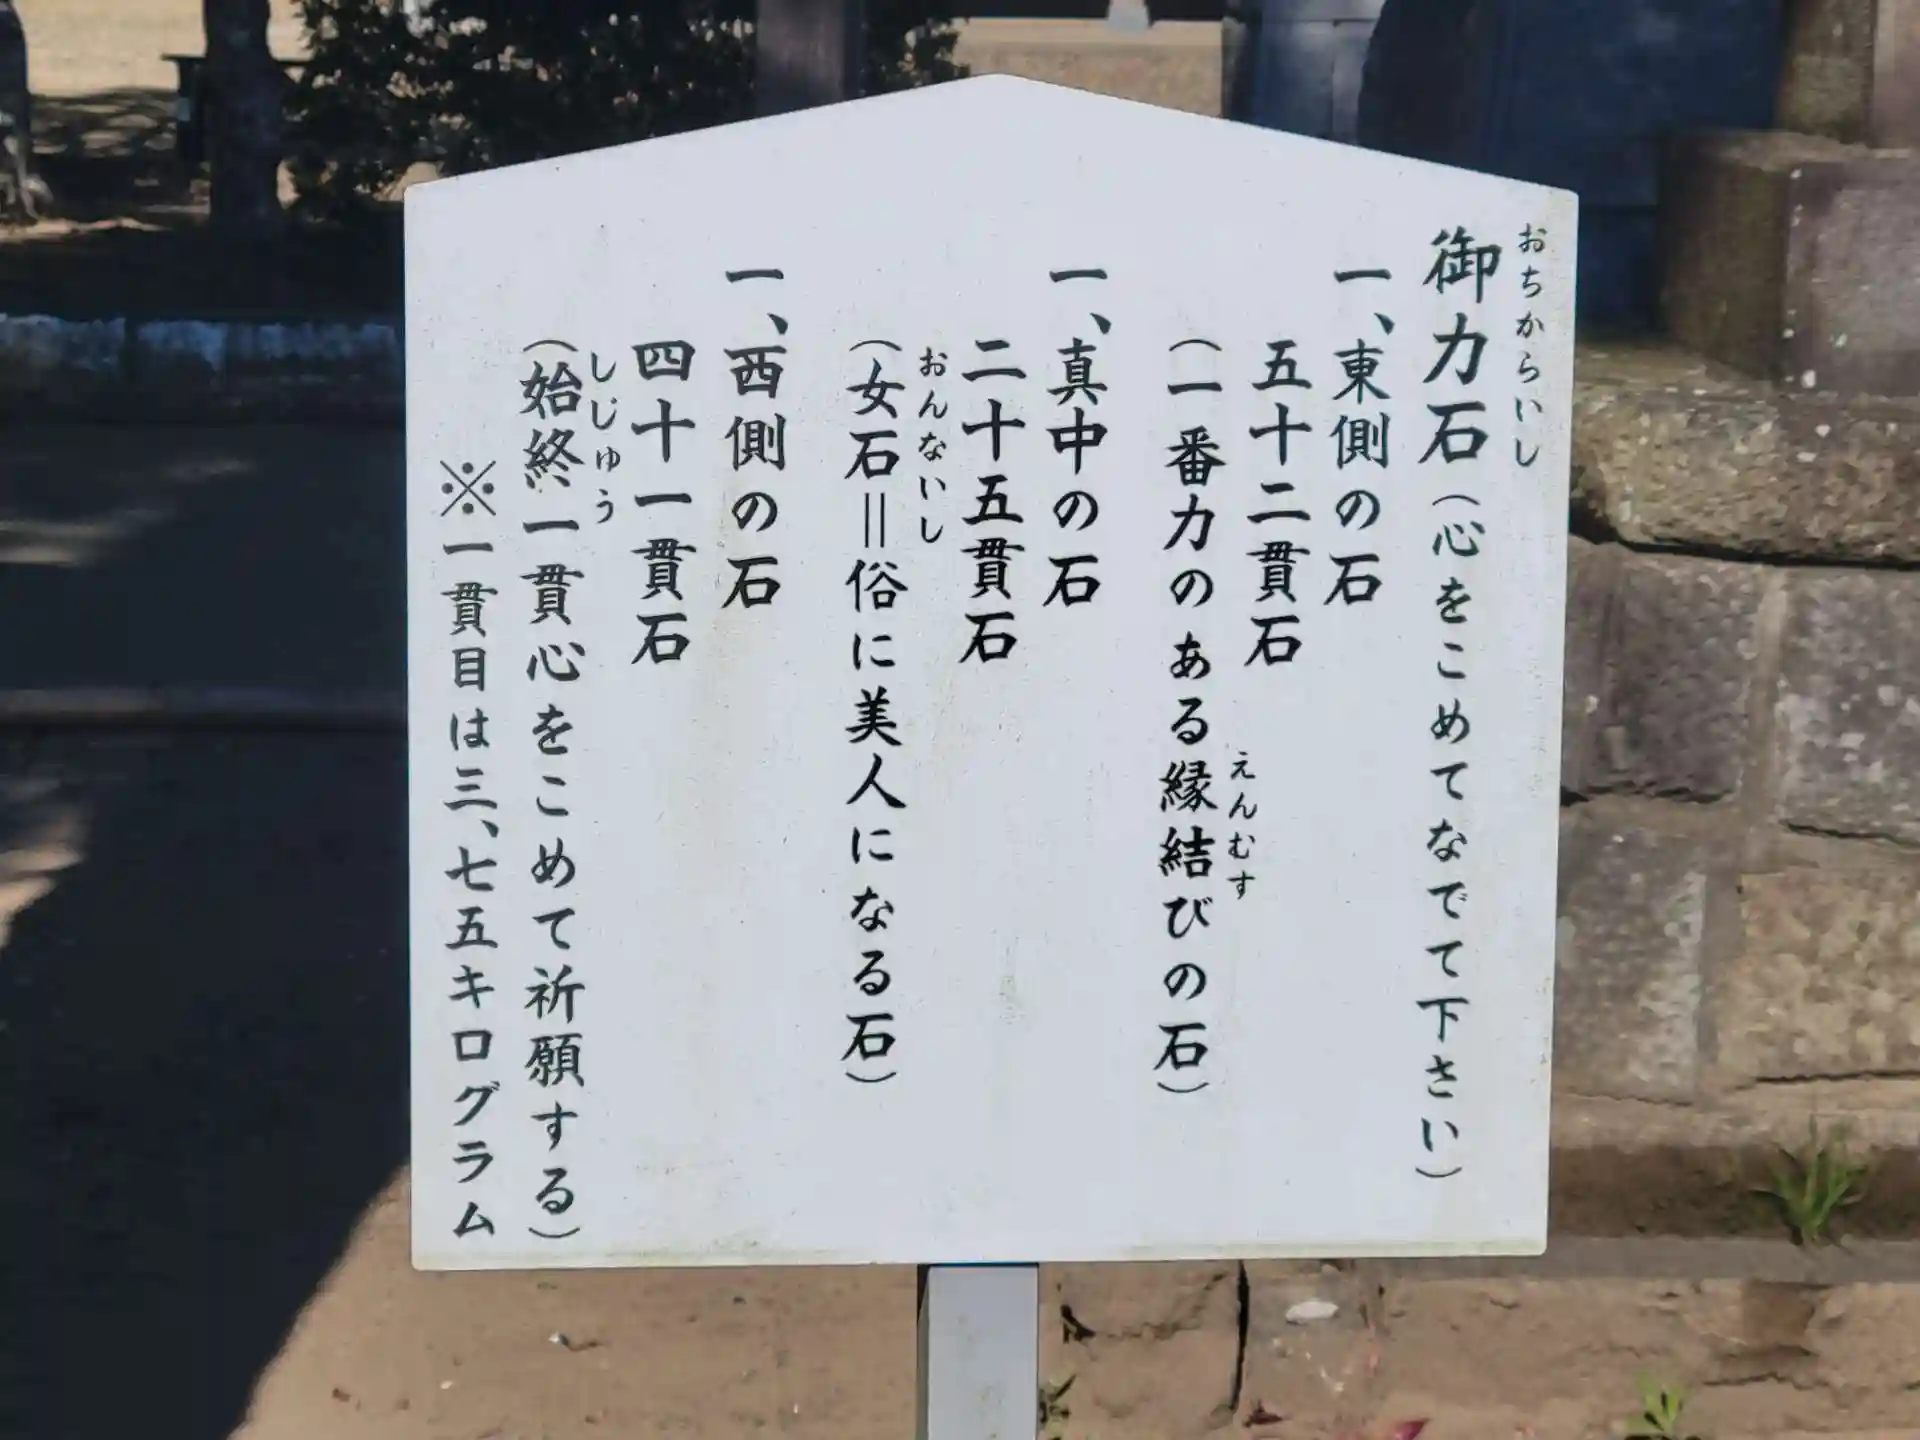 御力石（心をこめてなでて下さい）
おちからいし
一、東側の石
五十二貫石
（一番力のある縁結びの石）
えんむす
一、真中の石
二十五貫石
（女石＝俗に美人になる石）
おんないし
一、西側の石
四十一貫石
（始終一貫心をこめて祈願する）
しじゅう
※一貫目は三、七五キログラム